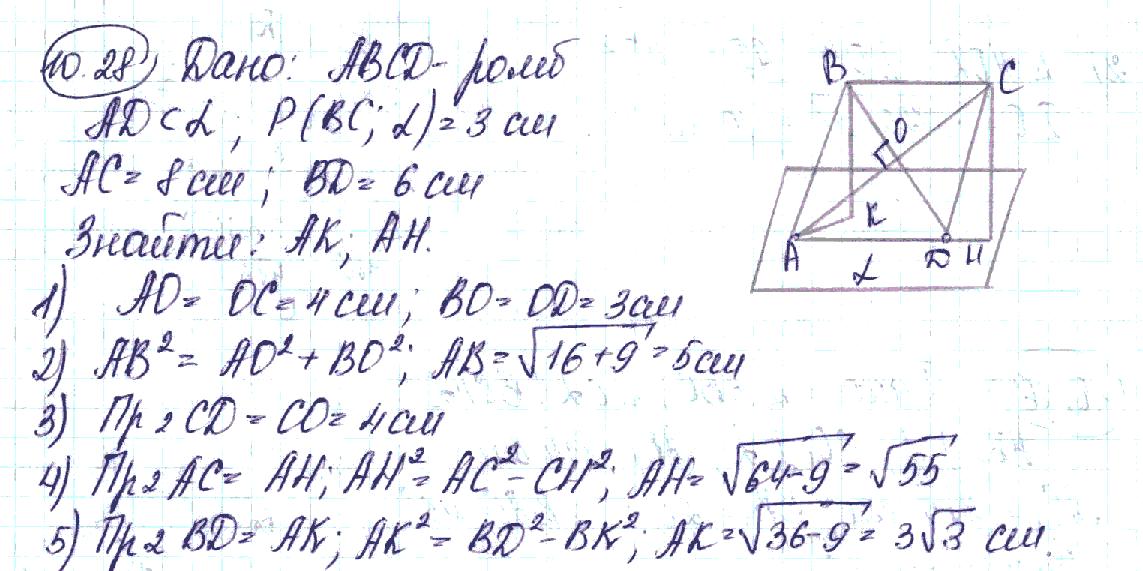 10.28 Дано: ABCD - ромб
AD ⊂ α, Р(BC; α) = 3 см
AC = 8 см; BD = 6 см
Знайти: AK; AH.
1) AO = OC = 4 см; BO = OD = 3 см
2) AB² = AO² + BO²; AB = √16+9 = 5 см
3) Пр₂ CD = CO = 4 см
4) Пр₂ AC = AH; AH² = AC² - CH²; AH = √64-9 = √55
5) Пр₂ BD = AK; AK² = BD² - BK²; AK = √36-9 = 3√3 см.
B C
O
K
A D H
α